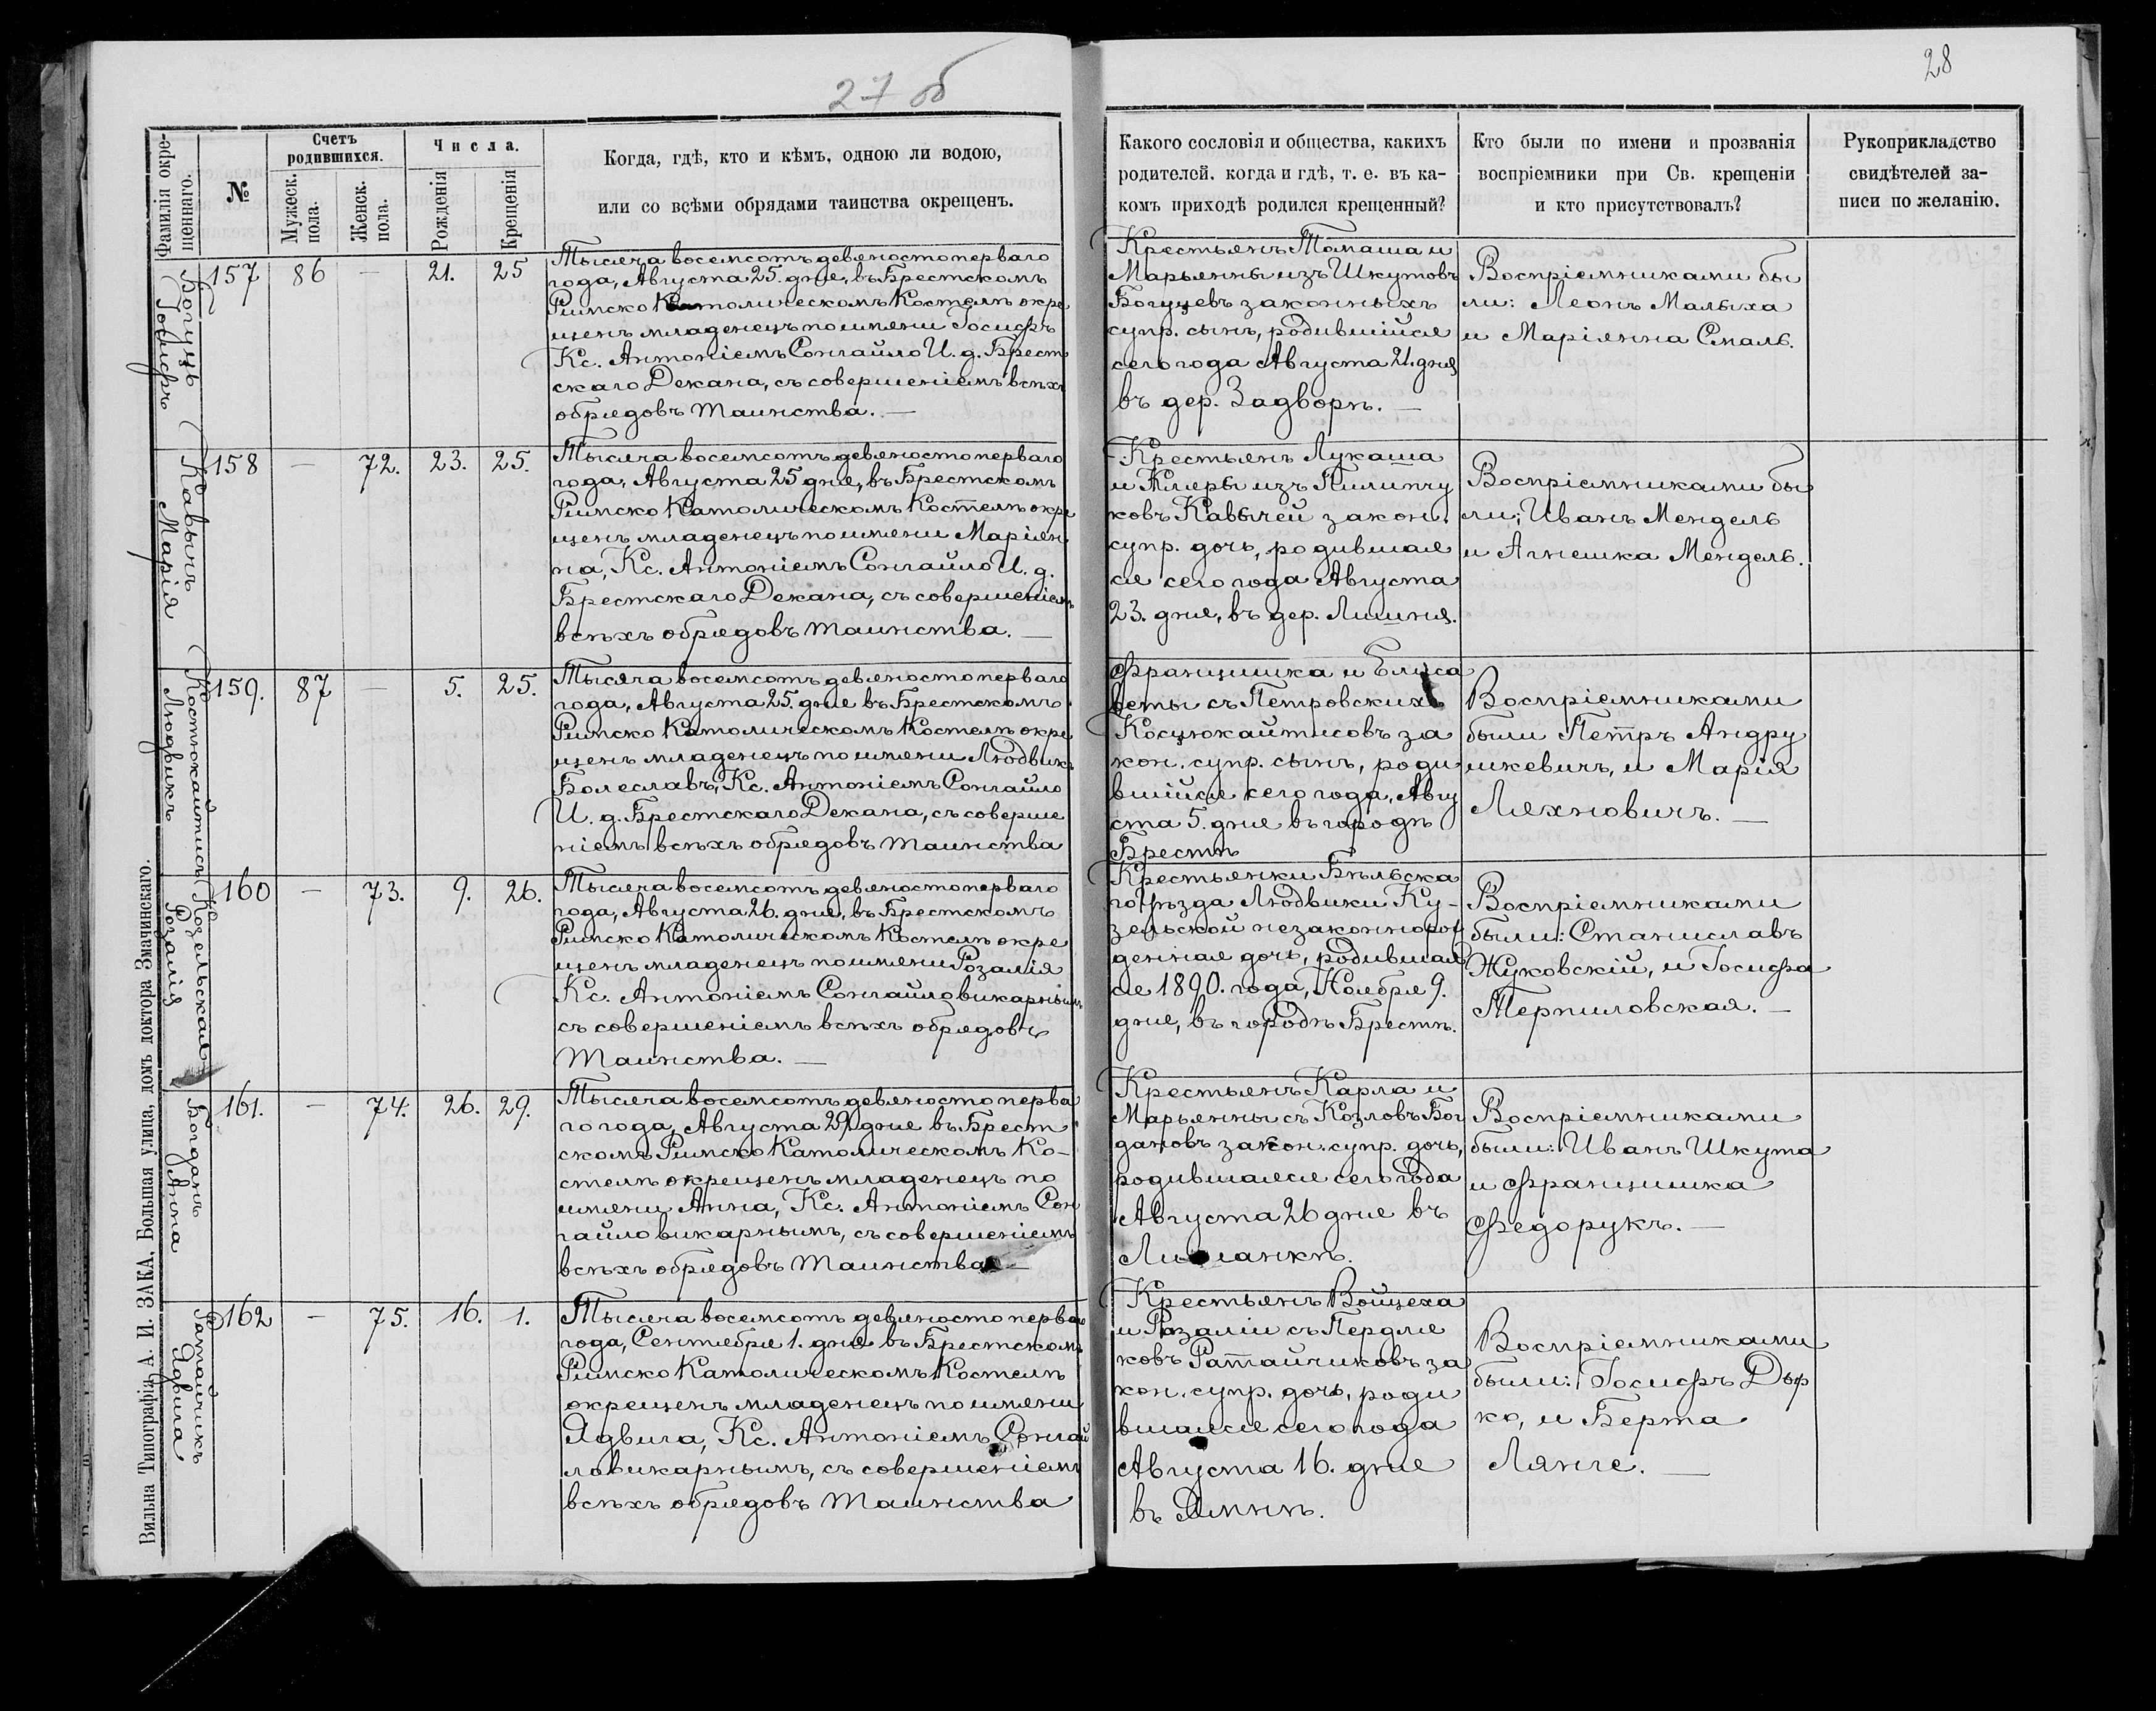 27 об
28
Фамилія окре-
щеннаго.
№
Счетъ
родившихся.
Мужеск.
пола.
Женск.
пола.
Числа.
Рожденія
Крещенія
Когда, гдѣ, кто и кѣмъ, одною ли водою,
или со всѣми обрядами таинства окрещенъ.
Какого сословія и общества, какихъ
родителей, когда и гдѣ, т. е. въ ка-
комъ приходѣ родился крещенный?
Кто были по имени и прозванія
воспріемники при Св. крещеніи
и кто присутствовалъ?
Рукоприкладство
свидѣтелей за-
писи по желанію.
Богуцъ
Іосифъ
157 86 — 21. 25
Тысяча восемсотъ девяносто перваго
года, Августа 25. дня, въ Брестскомъ
Римско Католическомъ Костелѣ окре
щенъ младенецъ по имени Іосифъ
Кс. Антоніемъ Сонгайло И. д. Брест
скаго Декана, съ совершеніемъ всѣхъ
обрядовъ таинства. —
Крестьянъ Томаша и
Марьянны изъ Шкутовъ
Богуцевъ законныхъ
супр. сынъ, родившійся
сего года Августа 21. дня
въ дер. Задворн. —
Воспріемниками бы
ли: Леонъ Малыха
и Маріянна Смаль.
Кавычъ
Марія
158 — 72. 23. 25.
Тысяча восемсотъ девяносто перваго
года, Августа 25 дня, въ Брестскомъ
Римско Католическомъ Костелѣ окре
щенъ младенецъ по имени Маріян
на, Кс. Антоніемъ Сонгайло И. д.
Брестскаго Декана, съ совершеніемъ
всѣхъ обрядовъ таинства. —
Крестьянъ Лукаша
и изъ Пилипчу
ковъ Кавычей закон.
супр. дочь, родившая
ся сего года Августа
23. дня, въ дер. Лишня.
Воспріемниками бы
ли; Иванъ Мендель
и Агнешка Мендель.
Костюкайтисъ
Людвикъ
159. 87 — 5. 25.
Тысяча восемсотъ девяносто перваго
года, Августа 25. дня въ Брестскомъ
Римско Католическомъ Костелѣ окре
щенъ младенецъ по имени Людвикъ
Болеславъ, Кс. Антоніемъ Сонгайло
И. д. Брестскаго Декана, съ соверше
ніемъ всѣхъ обрядовъ таинства
Францишка и Елиса
веты съ Петровскихъ
Косцюкайтисовъ за
кон. супр. сынъ, роди
вшійся сего года, Авгу
ста 5. дня въ городѣ
Брестѣ
Воспріемниками
были Петръ Андру
шкевичъ, и Марія
Ляхновичъ. —
Козельская
Розалія
160 — 73. 9. 26.
Тысяча восемсотъ девяносто перваго
года, Августа 26. дня, въ Брестскомъ
Римско Католическомъ Костелѣ окре
щенъ младенецъ по имени Розалія
Кс. Антоніемъ Сонгайло викарнымъ
съ совершеніемъ всѣхъ обрядовъ
таинства. —
Крестьянки Бѣльска
го Уѣзда Людвики Ку-
зельской незаконнорож
денная дочь, родившая
ся 1890. года, Ноября 9.
дня, въ городѣ Брестѣ.
Воспріемниками
были: Станиславъ
Жуковскій, и Іосифа
Терпиловская. —
Богданъ
Анна
161. — 74. 26. 29.
Тысяча восемсотъ девяносто перва
го года, Августа 29 дня въ Брест
скомъ Римско Католическомъ Ко-
стелѣ окрещенъ младенецъ по
имени Анна, Кс. Антоніемъ Сон
гайло викарнымъ, съ совершеніемъ
всѣхъ обрядовъ таинства —
Крестьянъ Карла и
Марьянны съ Козловъ Бог
дановъ закон. супр. дочь,
родившаяся сего года
Августа 26 дня въ
Воспріемниками
были: Иванъ Шкута
и Францишка
Федорукъ. —
Ратайчикъ
Ядвига
162 — 75. 16. 1.
Тысяча восемсотъ девяносто перваго
года, Сентября 1. дня въ Брестскомъ
Римско Католическомъ Костелѣ
окрещенъ младенецъ по имени
Ядвига, Кс. Антоніемъ Сонгай
ло викарнымъ, съ совершеніемъ
всѣхъ обрядовъ таинства
Крестьянъ Войцеха
и Розаліи съ Пердля
ковъ Ратайчиковъ за
кон. супр. дочь, роди
вшаяся сего года
Августа 16. дня
въ
Воспріемниками
были: Іосифъ Дыр
ко, и Берта
Лянге. —
Вильна Типографія А. И. ЗАКА, Большая улица, домъ доктора Змачинскаго.